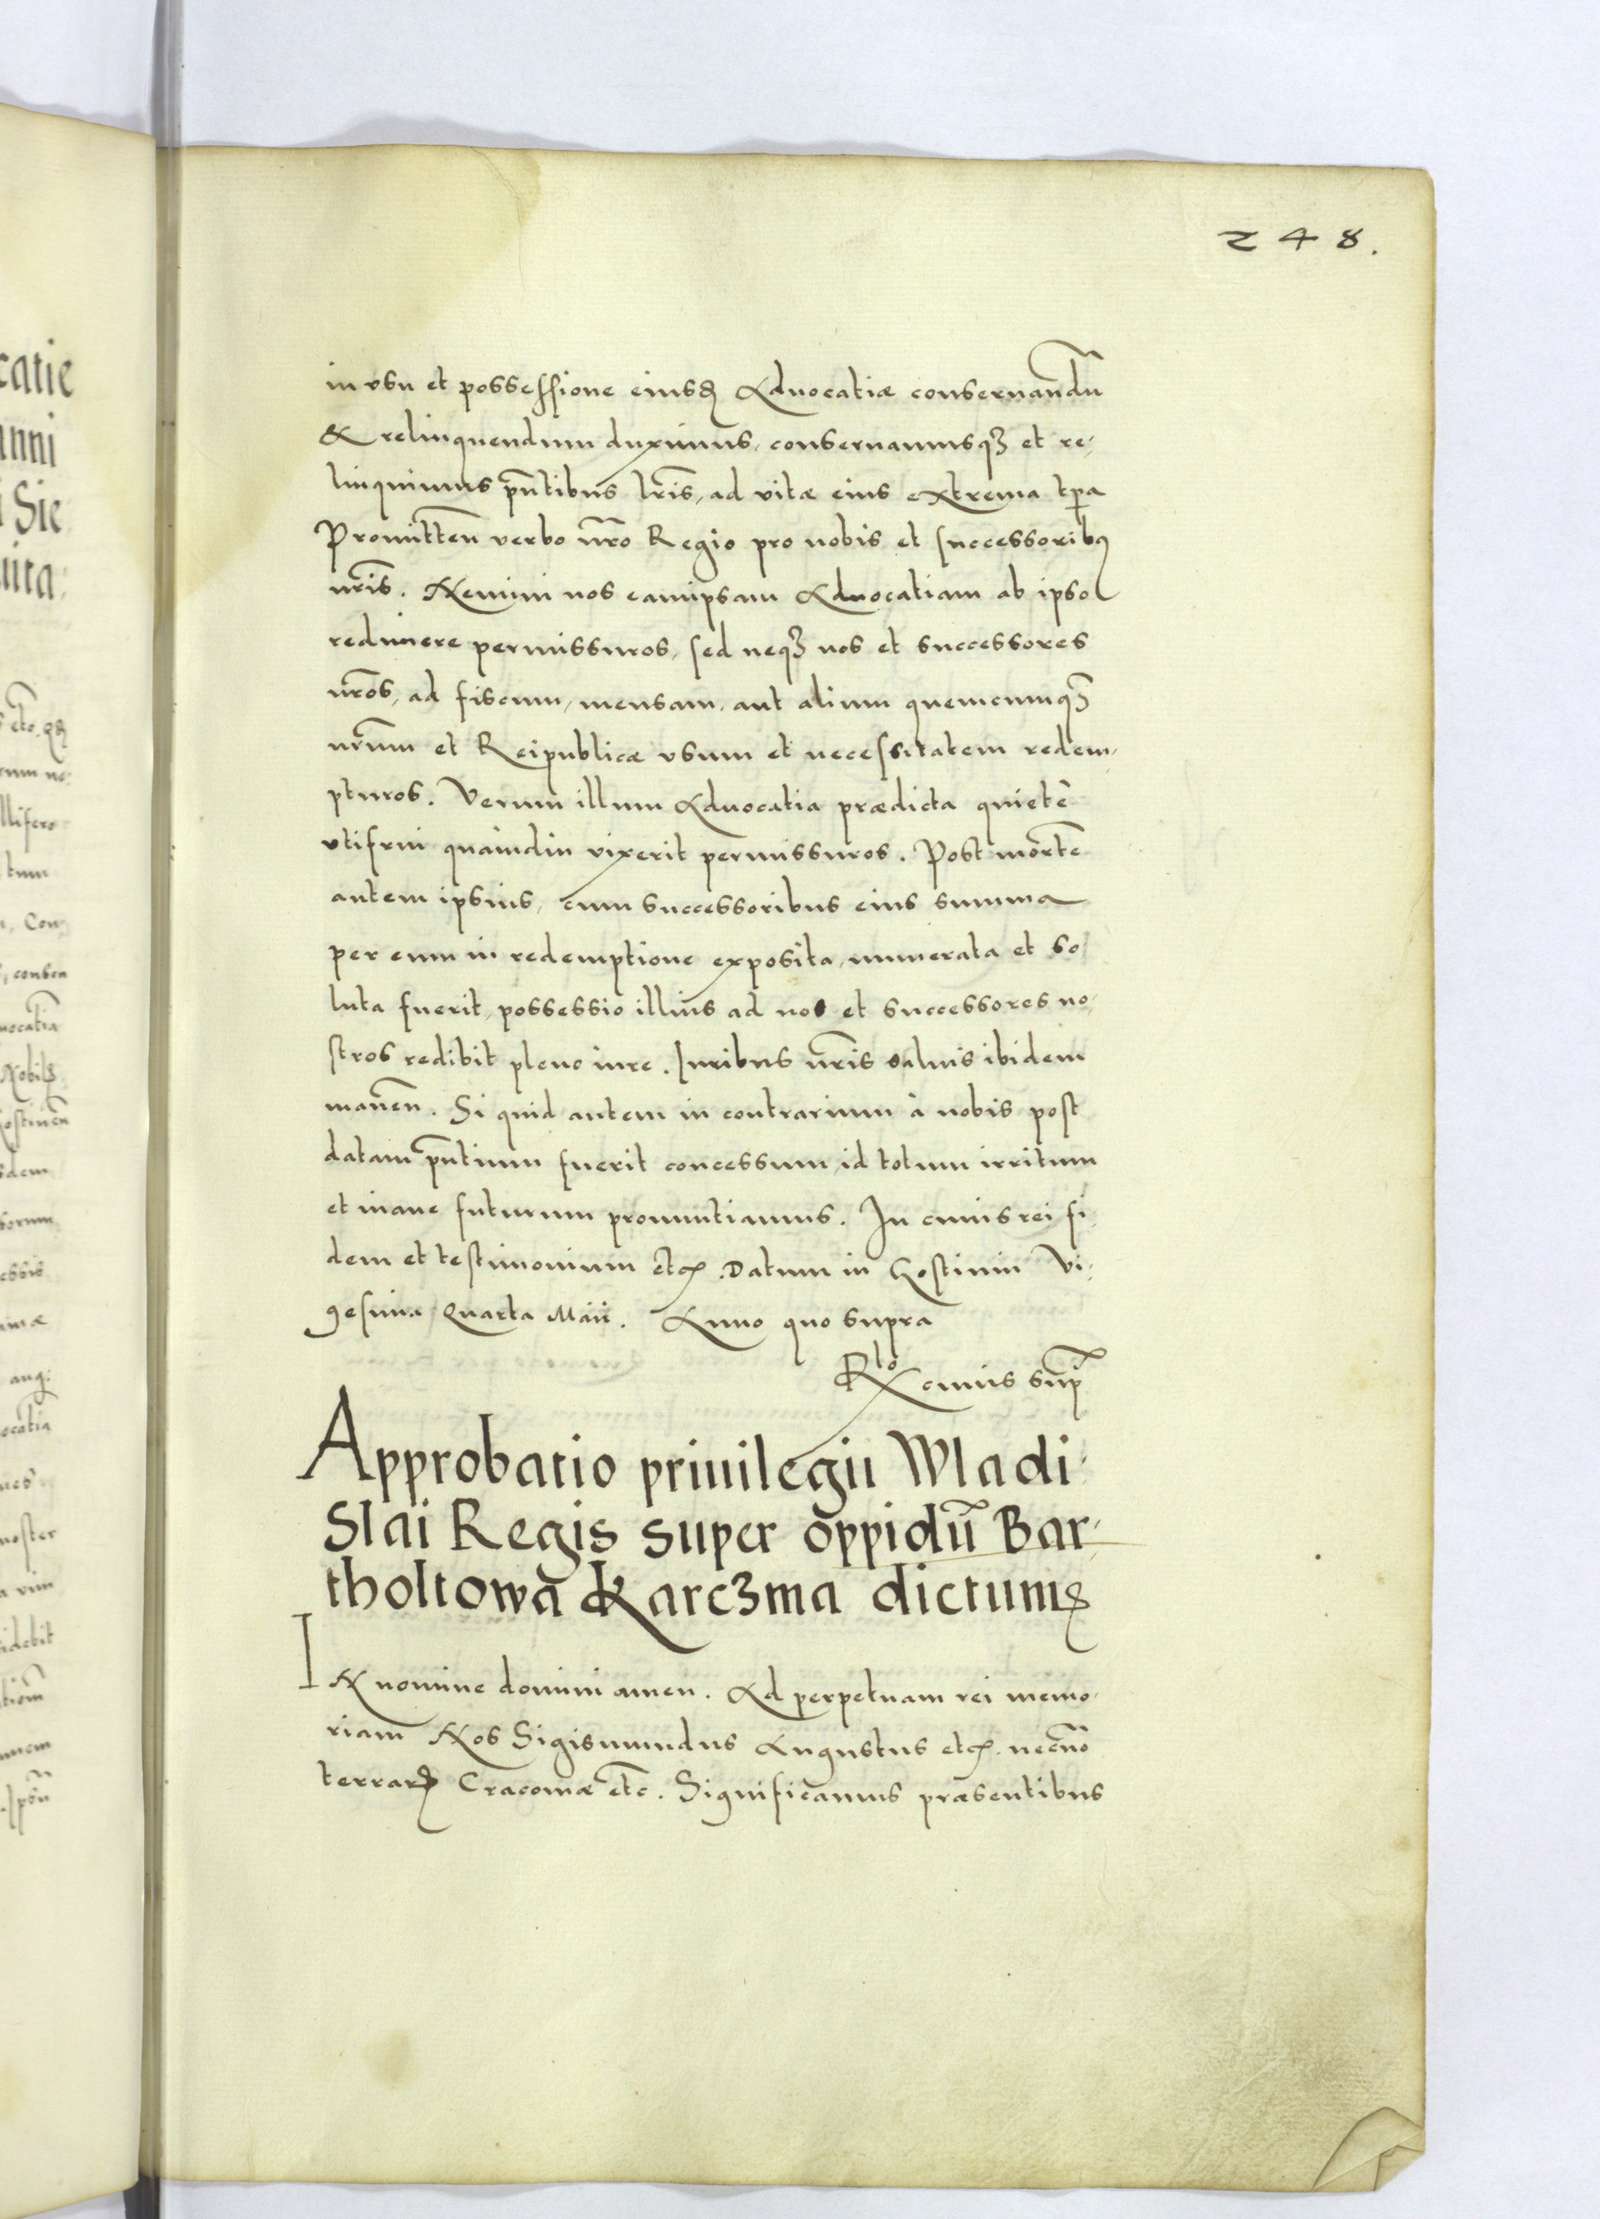 248.
in vsu et possessione eiusd Aduocatiæ conseruandū
& relinquendum duximus, conseruamusq3 et re-
linquimus pñtibus lris, ad vitæ eius extrema tpa
Promitten verbo nro Regio pro nobis et successoribq
nris. Nemini nos eamipsam Aduocatiam ab ipso
redimere permissuros, sed neq3 nos et successores
nros, ad fiscum, mensam, aut alium quemcumq3
nrum et Reipublicæ vsum et necessitatem redem-
pturos. Verum illum Aduocatia prædicta quietè
vtifrui quàmdiu vixerit permissuros. Post mortē
autem ipsius, cum successoribus eius summa
per eum in redemptione exposita, numerata et so-
luta fuerit, possessio illius ad nos et successores no-
stros redibit pleno iure. Iuribus nris saluis ibidem
manen. Si quid autem in contrarium à nobis post
datam pñtium fuerit concessum, id totum irritum
et inane futurum pronuntiamus. In cuius rei fi-
dem et testimonium etc. Datum in Gostinin Vi-
gesima Quarta Maii. Anno quo supra
Rlo cuius sup
Approbatio priuilegii Wladi-
slai Regis super oppidū Bar-
tholtowa Karc3ma dictum
IN nomine domini amen. Ad perpetuam rei memo-
riam Nos Sigismundus Augustus etc. necno
terrar Cracouiæ etc. Significamus præsentibus
catie
anni
i Sie
uita-
etc.
rum no-
llifero
tum
Con-
conben
uocatia
Nobil
Gostinen
sdem
sorum
essis
imæ
aug.
ocatia
noster
a vim
idebit